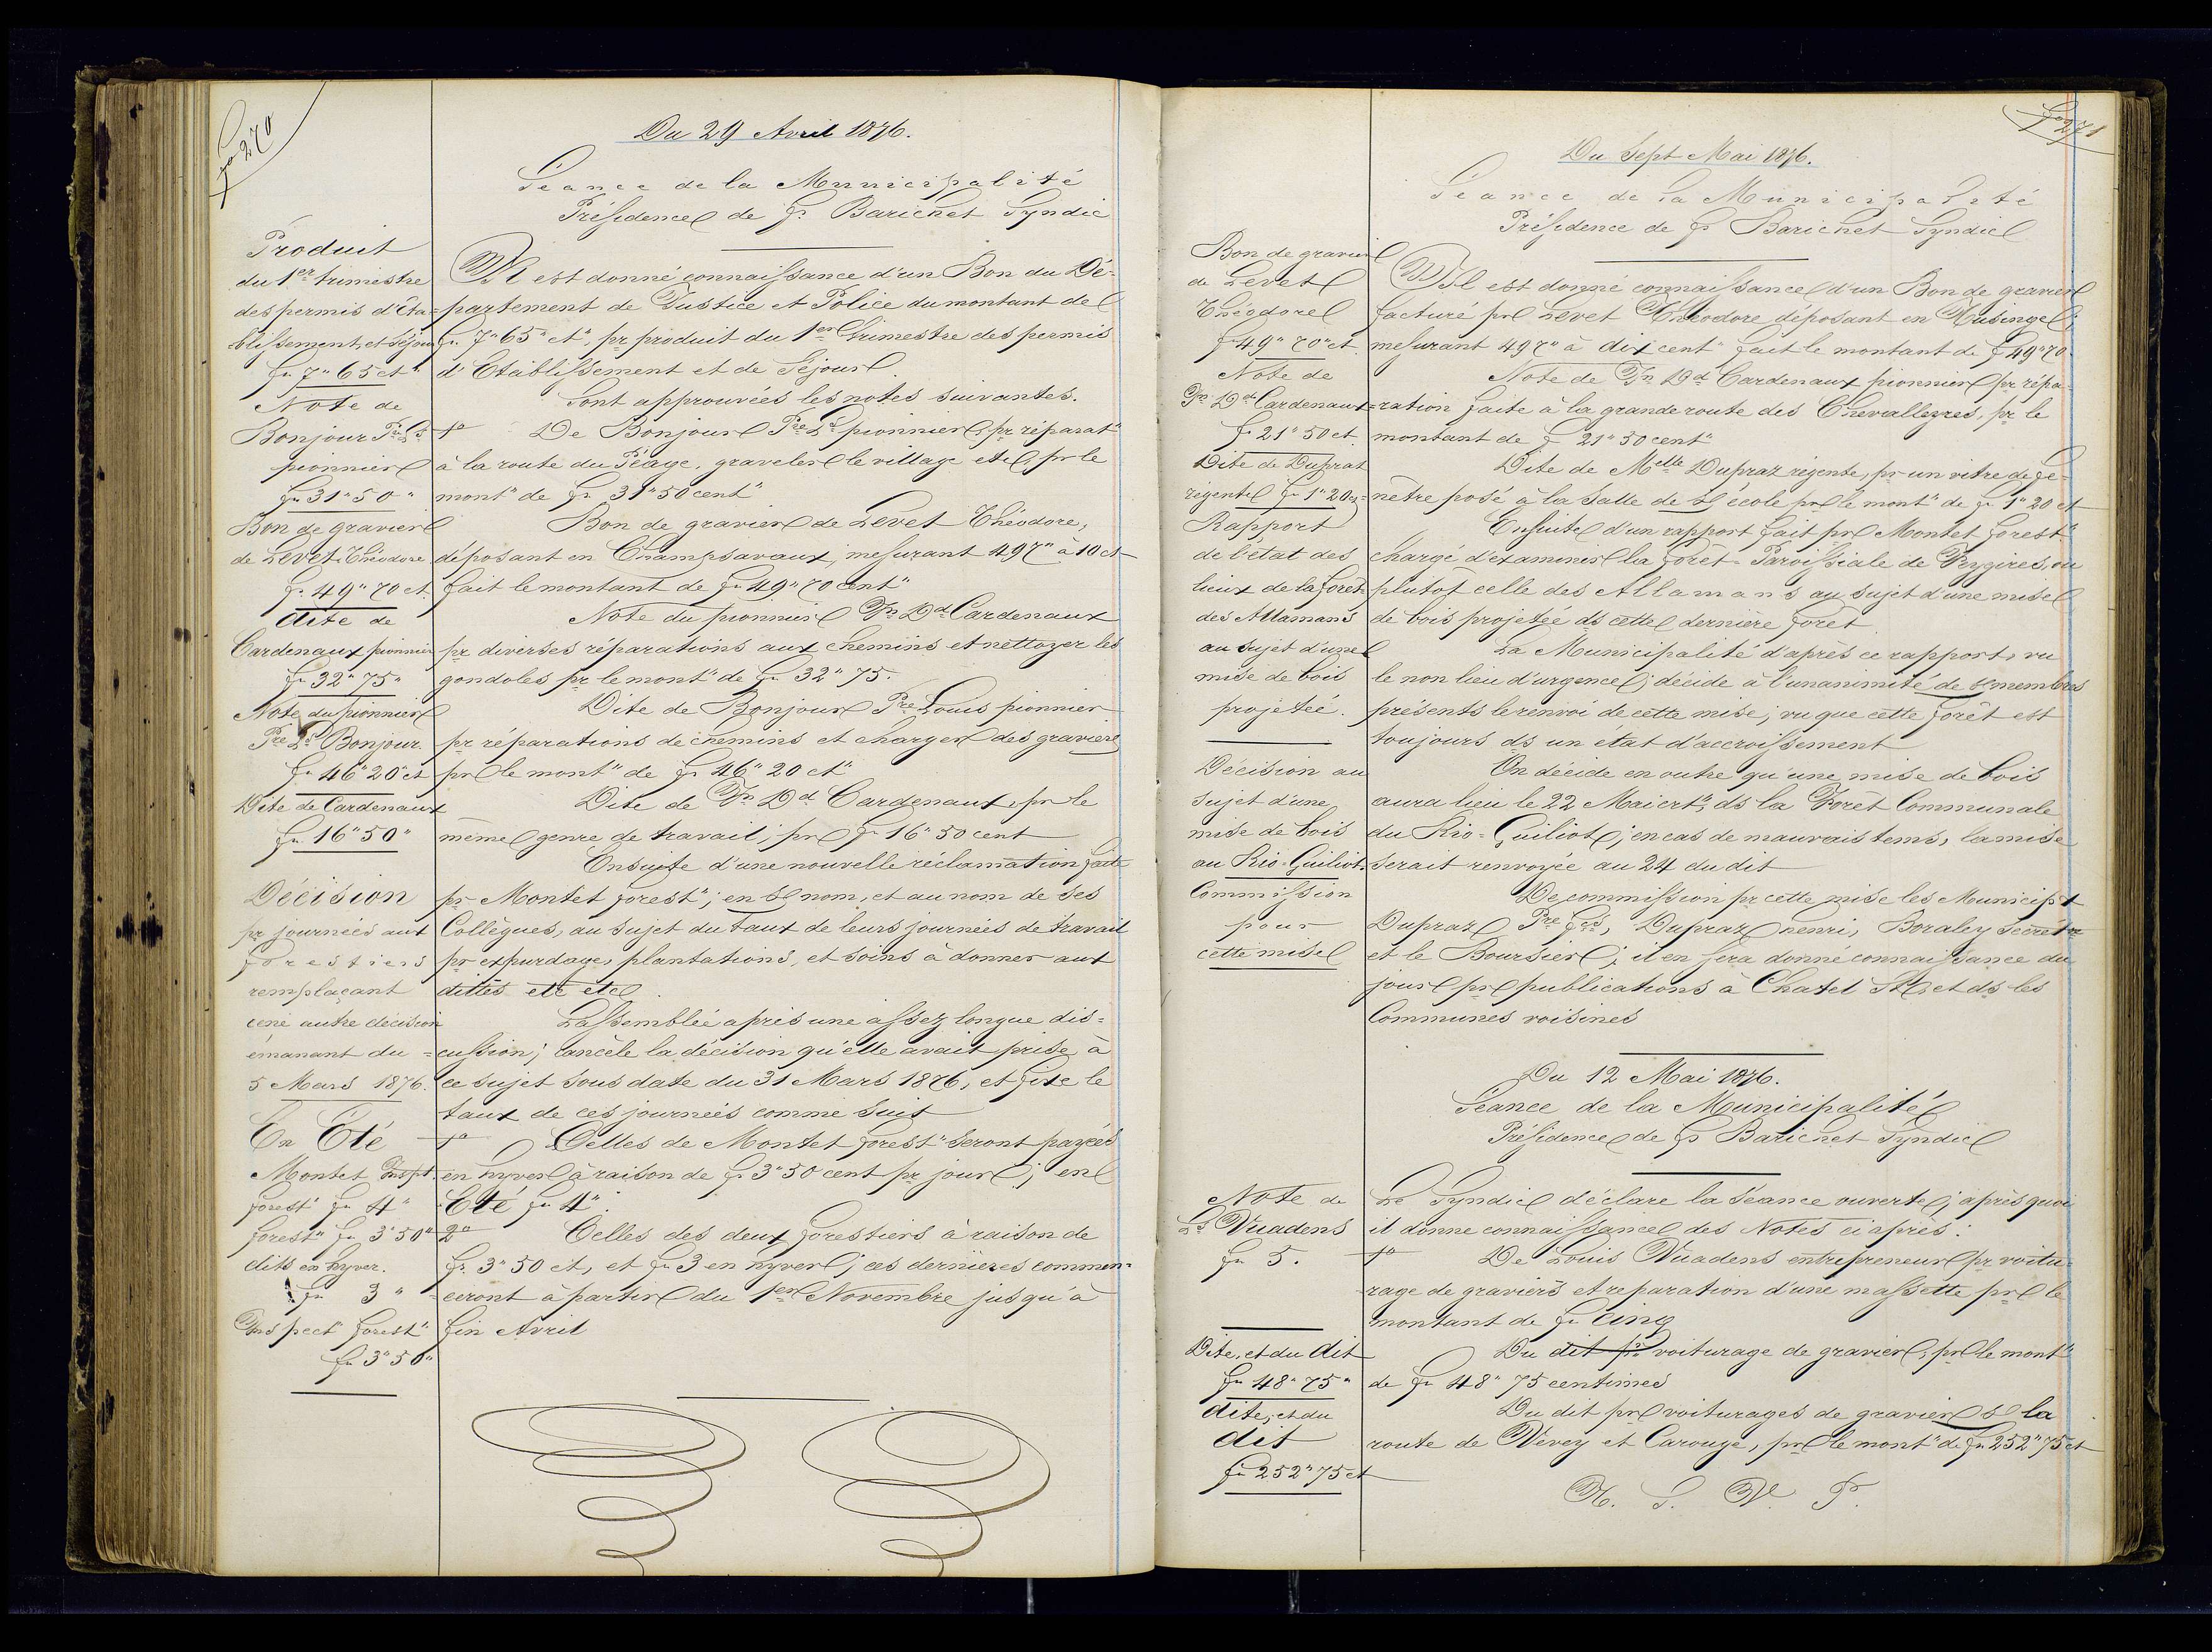 fo 270
Du 29 Avril 1876.
Séance de la Municipalité
Présidence de fs Barichet Syndic
Produit
du 1er trimestre
des permis d'Éta=
blissement, et séjour
fr 7" 65 ct"
Note de
Bonjour Pre Ls
pionnier
fr 31" 50"
Bon de gravier
de Levet Théodore
fr 49" 70 ct.
dite de
Cardenaux pionnier
fr 32" 75"
Note du pionnier
Pre Ls Bonjour.
fr 46" 20 ct
Dite de Cardenaux
fr 16" 50"
Décision
pr journées aux
forestiers
remplaçant
une autre décision
émanant du
5 Mars 1876.
En Été
Montet Inspt.
forest" fr 4"
forest" fr 3" 50"
dits en hyver.
fr 3"
Inspect" forest"
fr 3" 50"
Il est donné connaissance d'un Bon du Dé-
partement de Justice et Police du montant de
fr 7" 65 ct", pr produit du 1er trimestre des permis
d'Etablissement et de Séjour.
Sont approuvées les notes suivantes.
1o De Bonjour Pre Ls pionnier, pr réparat"
à la route du Péage, graveler le village etc, pr le
mont" de fr 31" 50 cent"
Bon de gravier de Levet Théodore,
déposant en Champsavaux, mesurant 497" à 10 ct
fait le montant de fr 49" 70 cent"
Note du pionnier Jn Dd Cardenaux
pr diverses réparations aux chemins et nettoyer les
gondoles pr le mont" de fr 32" 75.
Dite de Bonjour Pre Louis pionnier
pr réparations de chemins et charger des graviers
pr le mont" de fr 46" 20 ct"
Dite de Jn Dd Cardenaux, pr le
même genre de travail; pr fr 16" 50 cent
Ensuite d'une nouvelle réclamation faite
pr Montet forest"; en sl nom, et au nom de ses
Collègues, au sujet du taux de leurs journées de travail
pr expurdages, plantations, et soins à donner aux
dittes etc etc.
Lassemblée après une assez longue dis=
=cussion; cancèle la décision qu'elle avait prise à
ce sujet sous date du 31 Mars 1876, et fixe le
taux de ces journées comme suit
1o Celles de Montet forest" seront payées
en hyver à raison de fr 3" 50 cent pr jour; en
Eté fr 4".
2o Celles des deux forestiers à raison de
fr. 3" 50 ct, et fr 3 en hyver; ces dernières commen=
=ceront à partir du 1er Novembre jusqu'à
fin Avril
fo 271
Du Sept Mai 1876.
Séance de la Municipalité
Présidence de fs Barichet Syndic
Bon de gravier
de Levet
Théodore
f 49" 70" ct.
Note de
Jn Dd Cardenaux
fr 21" 50 ct.
Dite de Dupraz
régente fr 1" 20
Rapport
de l'état des
lieux de la forêt
des Allamans
au sujet d'une
mise de bois
projetée.
Décision au
sujet d'une
mise de bois
au Rio-Guiliot.
Commission
pour
cette mise
Il est donné connaissance d'un Bon de gravier
facturé pr Levet Théodore déposant en Rusinge;
mesurant 497" à dix cent" fait le montant de f 49" 70
Note de Jn Dd Cardenaux pionnier pr répa-
=ration faite à la grande route des Chevalleyres, pr le
montant de fr 21" 50 cent"
Dite de Melle Dupraz régente, pr un vitre de fe-
nêtre posé à la salle de sl école pr le mont" de fr 1" 20 ct
Ensuite d'un rapport fait pr Montet forest"
chargé d'examiner la forêt Paroissiale de Feygires, ou
plutot celle des Allamans au sujet d'une mise
de bois projetée ds cette dernière forêt
La Municipalité d'après ce rapport, vu
le non lieu d'urgence; décide à l'unanimité de sl membres
présents le renvoi de cette mise; vu que cette forêt est
toujours ds un état d'accroissement
On décide en outre qu'une mise de bois
aura lieu le 22 Mai crt", ds la Forêt Communale
du Rio-Guiliot; en cas de mauvais tems, la mise
serait renvoyée au 24 du dit
De commission pr cette mise les Municip"x
Dupraz Pre Fçs, Dupraz henri, Boraley Secretre
et le Boursier; il en sera donné connaissance du
jour pr publications à Chatel St D, et ds les
Communes voisines
Du 12 Mai 1876.
Séance de la Municipalité
Présidence de fs Barichet Syndic
Note de
Ls Vuadens
fr 5.
Dite, et du dit
fr 48" 75"
dite, et du
dit
fr 252" 75 ct
Le Syndic déclare la séance ouverte; après quoi
il donne connaissance des Notes ci après:
1o De Louis Vuadens entrepreneur pr voitu-
rage de graviers et reparation d'une massette pr le
montant de fr Cinq
Du dit pr voiturage de gravier, pr le mont"
de fr 48" 75 centimes
Du dit pr voiturages de gravier sl la
route de Vevey et Carouge, pr le mont" de fr 252" 75 ct
T. S. V. P.